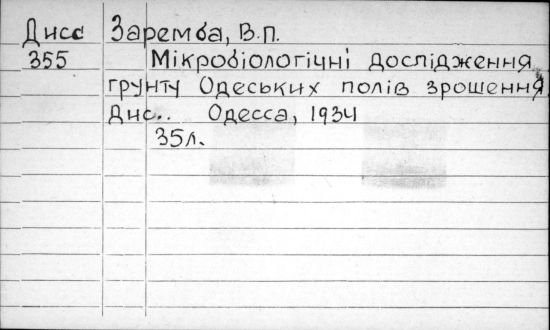 Дисс Заремба, В.П.
355 Мікробіологічні дослідження
грунту Одеських полів зрошення
Дис.. Одесса, 1934
35л.